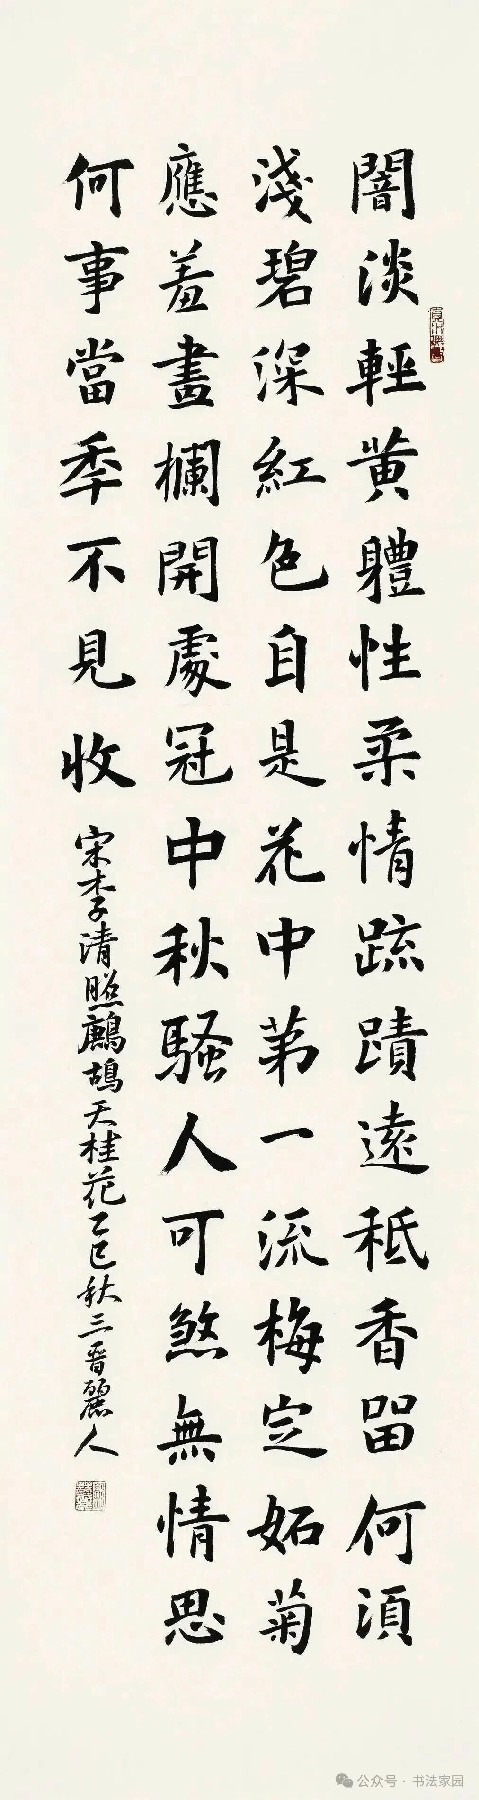 闇淡輕黄體性柔情疏蹟遠秪香留何須
淺碧深紅色自是花中第一流梅定妬菊
應羞畫欄開處冠中秋騷人可煞無情思
何事當年不見收
宋李清照鷓鴣天桂花乙巳秋三晉麗人
公众号·书法家园